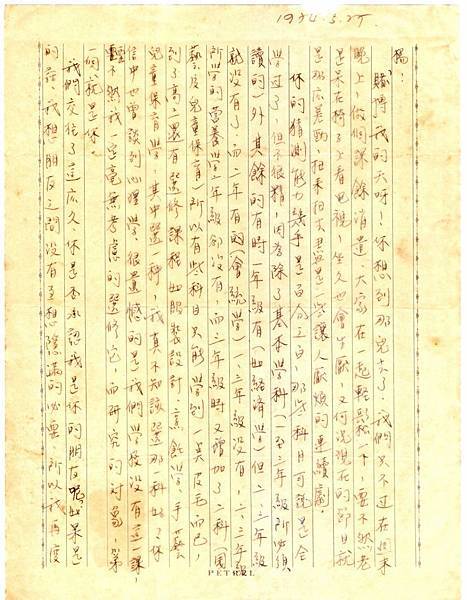 1974.5.27.
楊：
賭博我的天呀！休想到那兒去了，我們只不过在週末
晚上，做個課餘消遣，大家在一起輕鬆一下，要不然老
是呆在椅子上看电視，坐久也會生厭，又何況現在的節目就
是那広幾齣，扭來扭去盡是一些讓人厭煩的連續劇。
休的猜測能力幾乎是百分之百，那些科目可說是全
學过了，但不很精，因為除了基本學科（一至三年級所必須
讀的）外其餘的有時一年級有（如經濟學）但二、三年級
就没有了，而二年有的（會統學）一、三年級没，二、三年級
所學的營養學一年級卻没有，而三年級時又增加了二科（園
藝及兒童保育）所以有些科目只能學到一點皮毛而已，
到了高三還有選修課程如服裝設計、烹飪學、手藝、
兒童保育學，其中選一科，我真不知該選那科好？休
信中也曾談到心理學，很遺憾的是我們學校没有這一課，
要不然我一定毫無考慮的選修它，而研究的对象，第
一個就是休。
我們交往了這広久，休是否承認我是休的朋友呢如果是
的話，我想朋友之間没有互相隱瞞的必要，所以我再度
PETREL